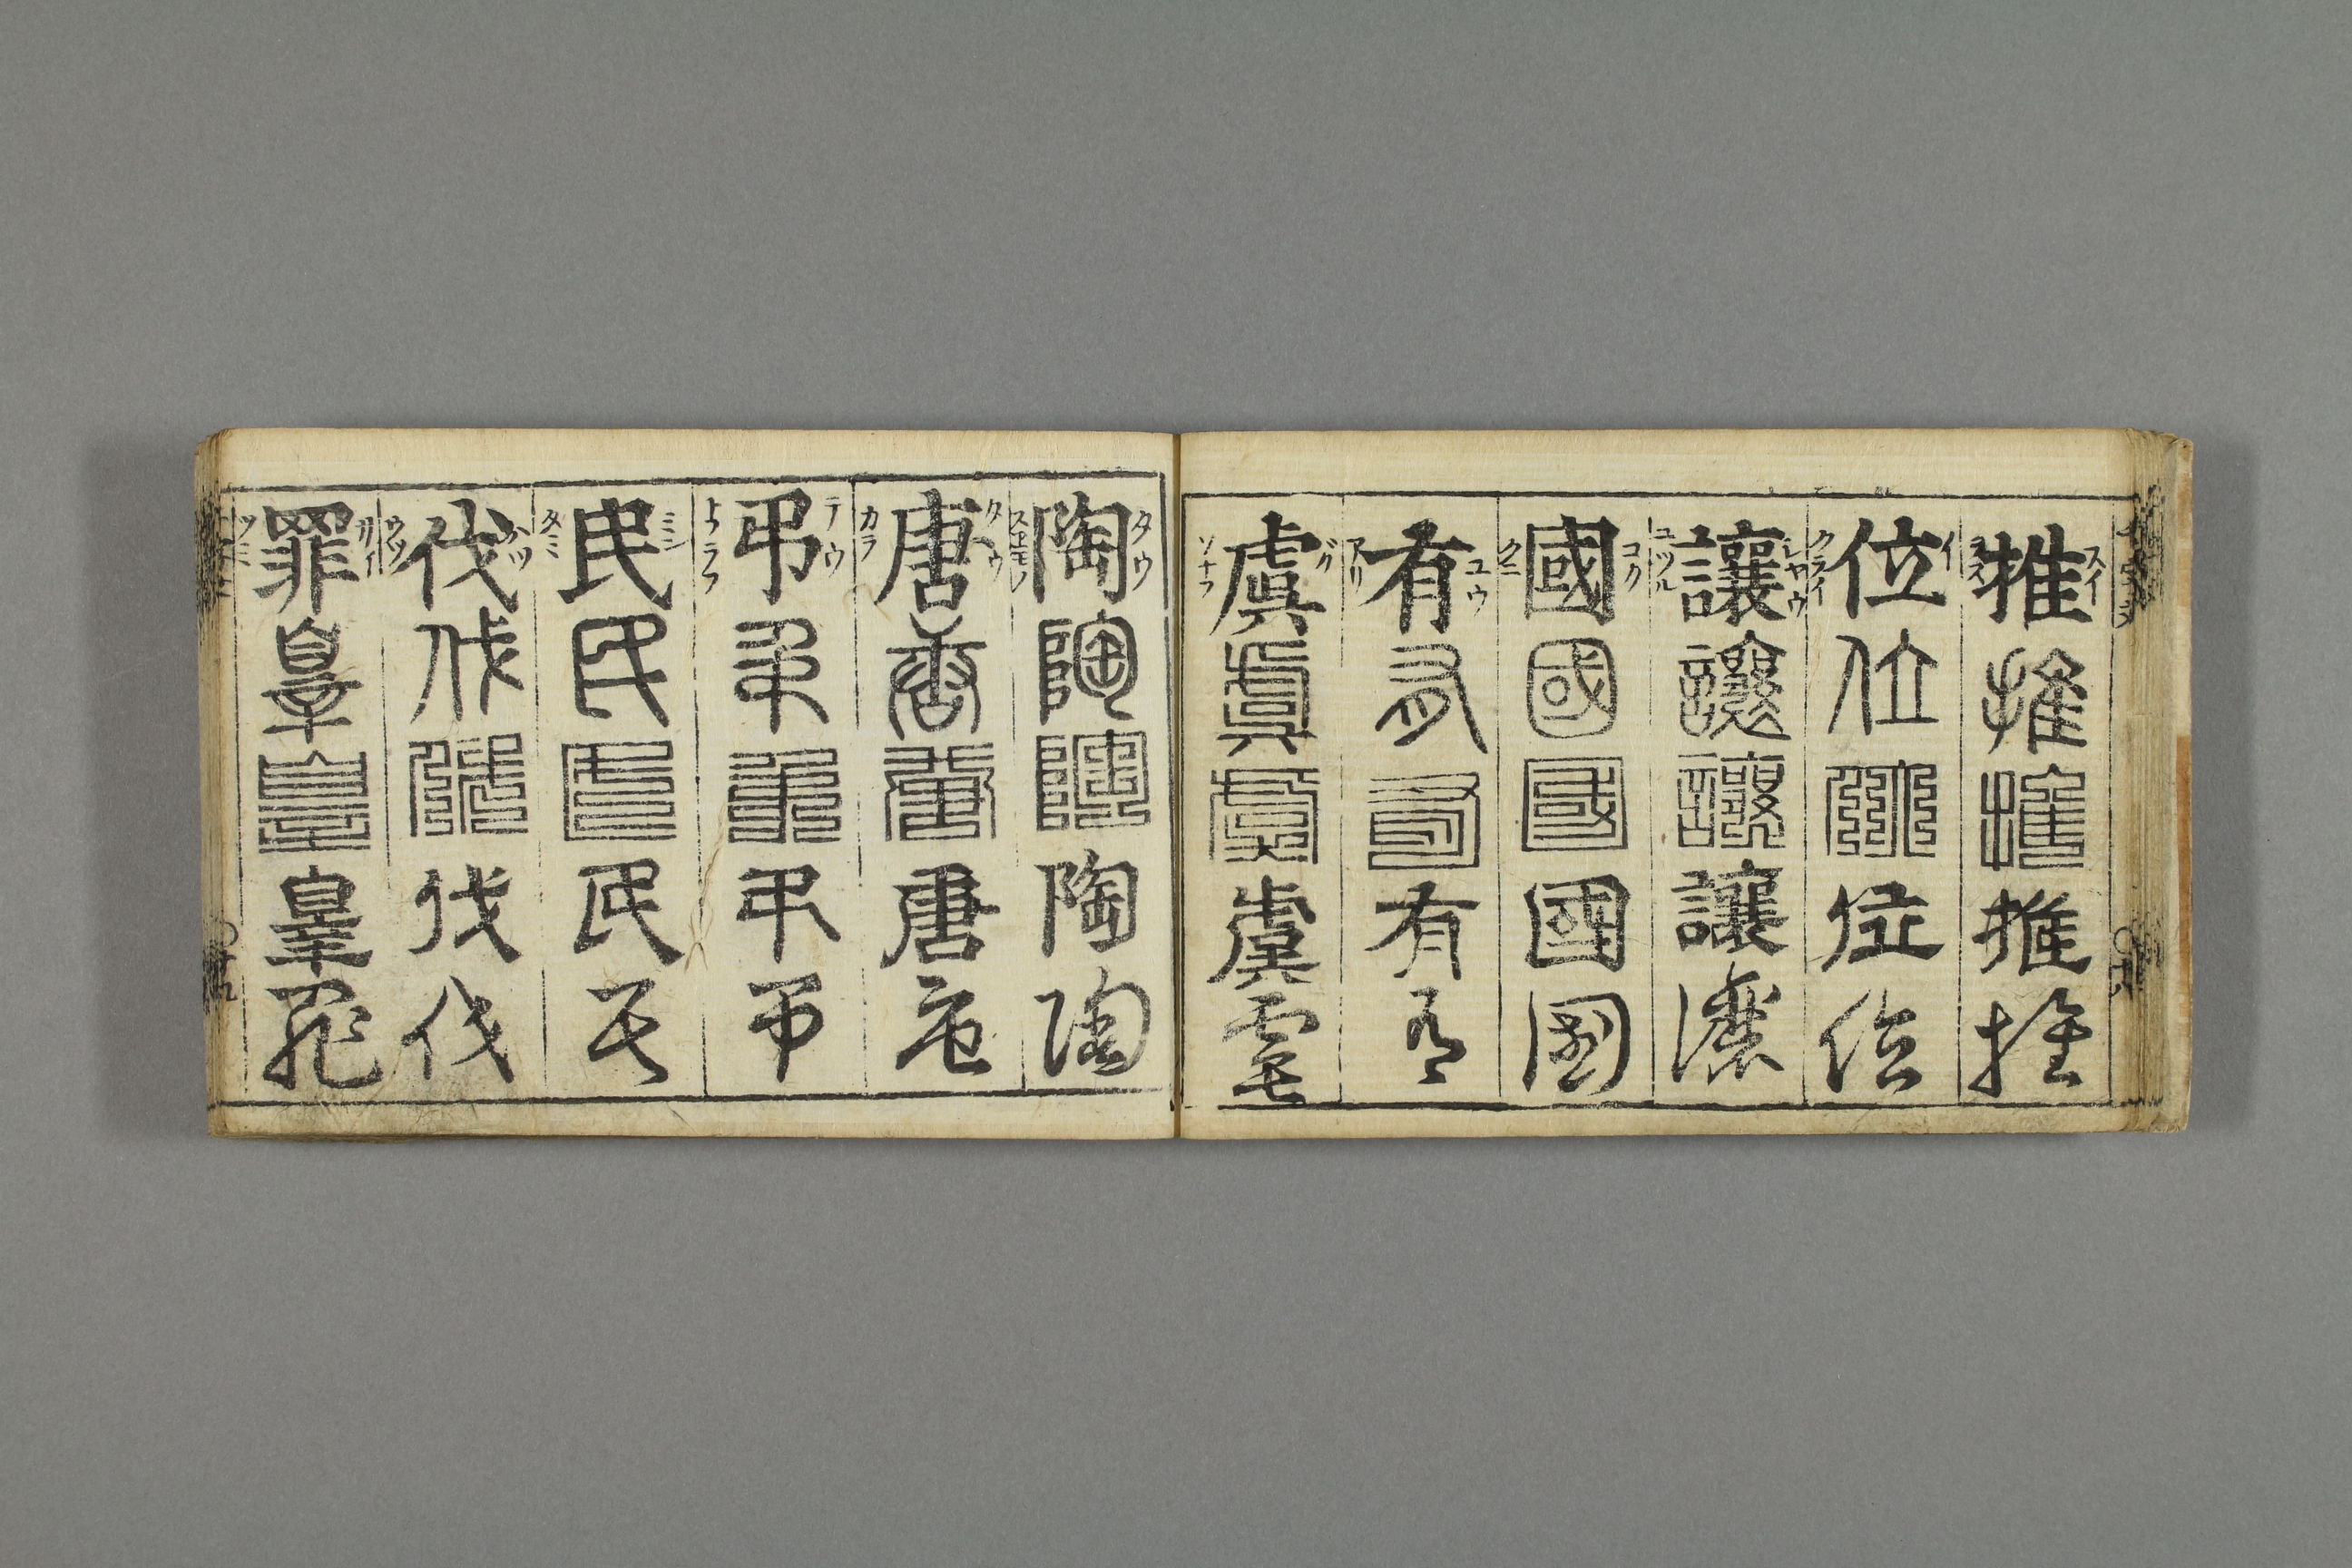 スイ 推推推推推 ヲス
イ 位位位位位 クライ
シヤウ 讓讓讓讓讓 ユツル
コク 國國國國國 クニ
ユウ 有有有有有 アリ
グ 虞虞虞虞虞 ソナフ
タウ 陶陶陶陶陶 スエモノ
タウ 唐唐唐唐唐 カラ
テウ 弔弔弔弔弔 トフラフ
ミン 民民民民民 タミ
バツ 伐伐伐伐伐 ウツ
罪辠辠辠罪 ツミ